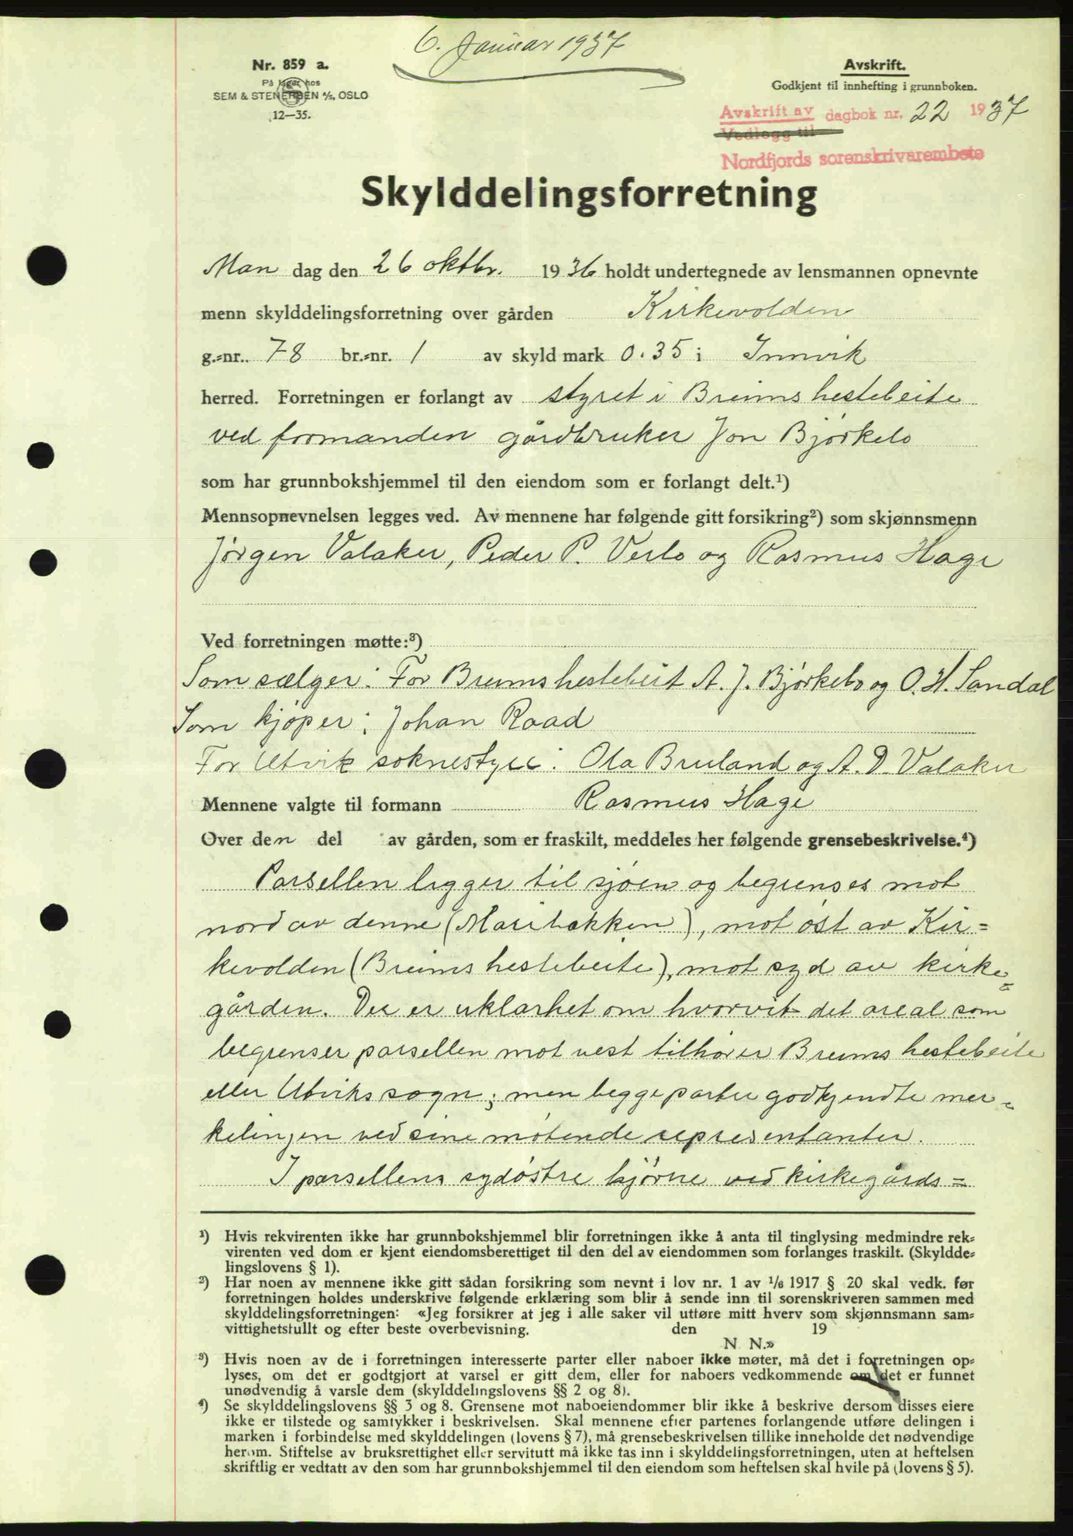 6. Januar 1937
Nr. 859 a.
På lager hos
SEM & STENERSEN A/S, OSLO
12—35.
Avskrift.
Godkjent til innhefting i grunnboken.
Avskrift av dagbok nr. 22 1937
Vedlegg til
Nordfjords sorenskrivarembete
Skylddelingsforretning
Man dag den 26 oktbr. 1936 holdt undertegnede av lensmannen opnevnte
menn skylddelingsforretning over gården Kirkevolden
g.=nr. 78 br.=nr. 1 av skyld mark 0.35 i Innvik
herred. Forretningen er forlangt av styret i Breims hestebeite
ved formanden gårdbruker Jon Bjørkelo
som har grunnbokshjemmel til den eiendom som er forlangt delt.¹)
Mennsopnevnelsen legges ved. Av mennene har følgende gitt forsikring²) som skjønnsmenn
Jørgen Valaker, Peder P. Verlo og Rasmus Hage
Ved forretningen møtte:³)
Som sælger: For Breims hestebeit A. J. Bjørkelo og O. H. Sandal
Som kjøper: Johan Raad
For Utvik soknestyre: Ola Bruland og A. D. Valaker
Mennene valgte til formann Rasmus Hage
Over den del av gården, som er fraskilt, meddeles her følgende grensebeskrivelse.⁴)
Parsellen ligger til sjøen og begrenses mot
nord av denne (Maribakken), mot øst av Kir=
kevolden (Breims hestebeite), mot syd av kirke=
gården. Det er uklarhet om hvorvit det areal som
begrenser parsellen mot vest tilhører Breims hestebeite
eller Utviks sogn; men begge parter godkjendte mer=
kelingen ved sine møtende representanter.
I parsellens sydøstre hjørne ved kirkegårds=
¹) Hvis rekvirenten ikke har grunnbokshjemmel blir forretningen ikke å anta til tinglysing medmindre rek=
virenten ved dom er kjent eiendomsberettiget til den del av eiendommen som forlanges fraskilt. (Skyldde=
lingslovens § 1).
²) Har noen av mennene ikke gitt sådan forsikring som nevnt i lov nr. 1 av 1/6 1917 § 20 skal vedk. før
forretningen holdes underskrive følgende erklæring som blir å sende inn til sorenskriveren sammen med
skylddelingsforretningen: «Jeg forsikrer at jeg i alle saker vil utføre mitt hverv som skjønnsmann sam=
vittighetsfullt og efter beste overbevisning. den 19
N N.»
³) Hvis noen av de i forretningen interesserte parter eller naboer ikke møter, må det i forretningen op=
lyses, om det er godtgjort at varsel er gitt dem, eller for naboers vedkommende om det er funnet
unødvendig å varsle dem (skylddelingslovens §§ 2 og 8).
⁴) Se skylddelingslovens §§ 3 og 8. Grensene mot naboeiendommer blir ikke å beskrive dersom disses eiere
ikke er tilstede og samtykker i beskrivelsen. Skal mennene efter partenes forlangende utføre delingen i
marken i forbindelse med skylddelingen (lovens § 7), må grensebeskrivelsen tillike inneholde det nødvendige
herom. Stiftelse av bruksrettighet eller servitutt må ikke tas inn i skylddelingsforretningen, uten at heftelsen
skriftlig er vedtatt av den som har grunnbokshjemmel til den eiendom som heftelsen skal hvile på (lovens § 5).